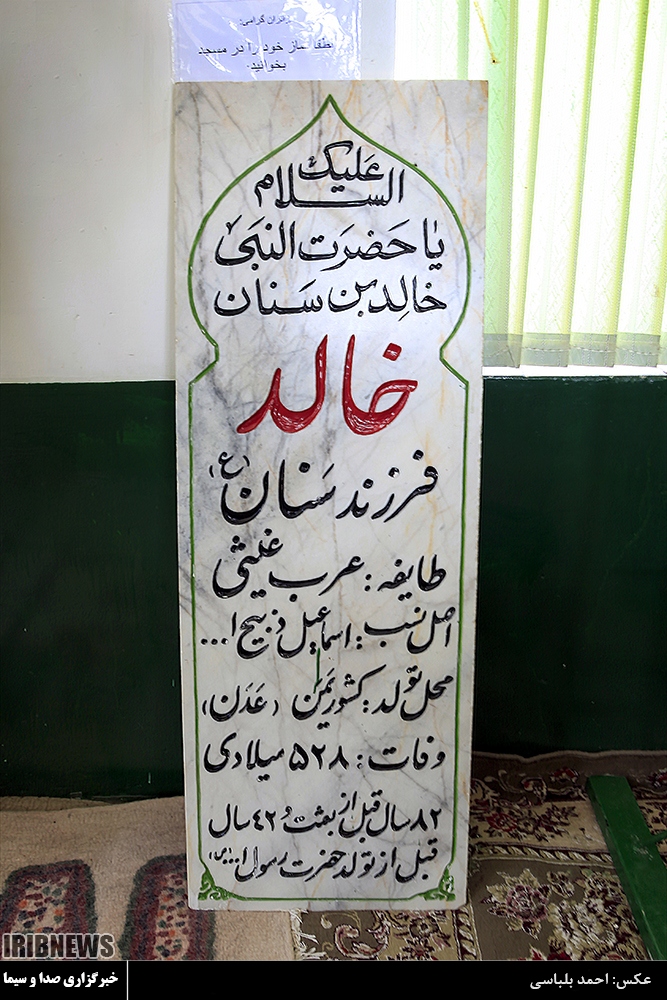 زائران گرامی:
لطفا نماز خود را در مسجد
بخوانید.
السلام علیک
یا حَضرَت النبَی
خالِد بن سَنان
خالد
فرزند سَنان (ع)
طایفه: عرب غیثی
اصل نسب: اسماعیل ذبیح ا...
محل تولد: کشور یَمَن (عَدَن)
وفات: ۵۲۸ میلادی
۸۲ سال قبل از بعثت و ۴۲ سال
قبل از تولد حضرت رسول ا...(ص)
IRIBNEWS
خبرگزاری صدا و سیما
عکس: احمد بلباسی